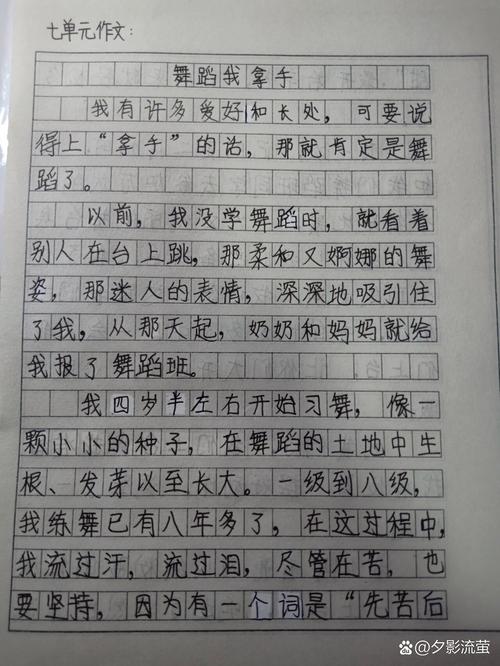 七单元作文：
舞蹈我拿手
我有许多爱好和长处，可要说
得上“拿手”的话，那就肯定是舞
蹈了。
以前，我没学舞蹈时，就看着
别人在台上跳，那柔和又婀娜的舞
姿，那迷人的表情，深深地吸引住
了我，从那天起，奶奶和妈妈就给
我报了舞蹈班。
我四岁半左右开始习舞，像一
颗小小的种子，在舞蹈的土地中生
根、发芽以至长大。一级到八级，
我练舞已有八年多了，在这过程中，
我流过汗，流过泪，尽管在苦，也
要坚持，因为有一个词是“先苦后
夕影流萤